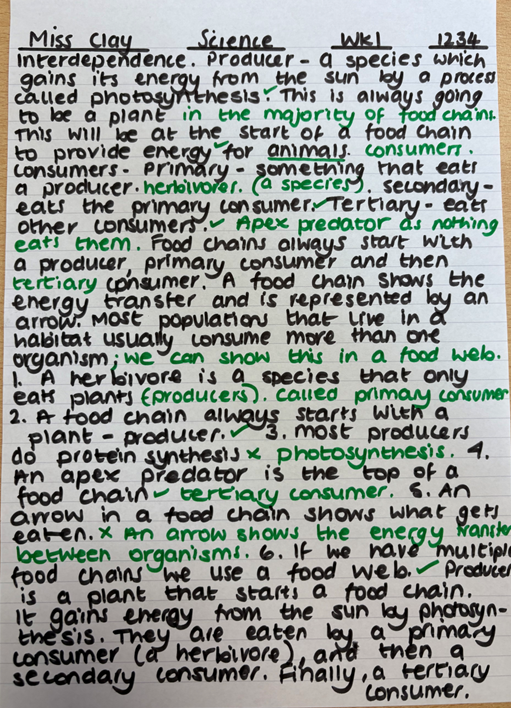 Miss Clay Science Wk1 1234
interdependence. Producer - a species which
gains its energy from the sun by a process
called photosynthesis.✓ This is always going
to be a plant in the majority of food chains.
This will be at the start of a food chain
to provide energy ✓ for animals. consumers.
consumers - Primary - something that eats
a producer. herbivores. (a species). secondary -
eats the primary consumer.✓ Tertiary - eats
other consumers. ✓ Apex predator as nothing
eats them. Food chains always start with
a producer, primary consumer and then
tertiary consumer. A food chain shows the
energy transfer and is represented by an
arrow. Most populations that live in a
habitat usually consume more than one
organism; we can show this in a food web.
1. A herbivore is a species that only
eats plants (producers). called primary consumer
2. A food chain always starts with a
plant - producer. ✓ 3. most producers
do protein synthesis x photosynthesis. 4.
An apex predator is the top of a
food chain ✓ tertiary consumer. 5. An
arrow in a food chain shows what gets
eaten. x An arrow shows the energy transfe
between organisms. 6. If we have multipl
food chains we use a food web. ✓ Producer
is a plant that starts a food chain.
It gains energy from the sun by photosyn-
thesis. They are eaten by a primary
consumer (a herbivore), and then a
secondary consumer. Finally, a tertiary
consumer.